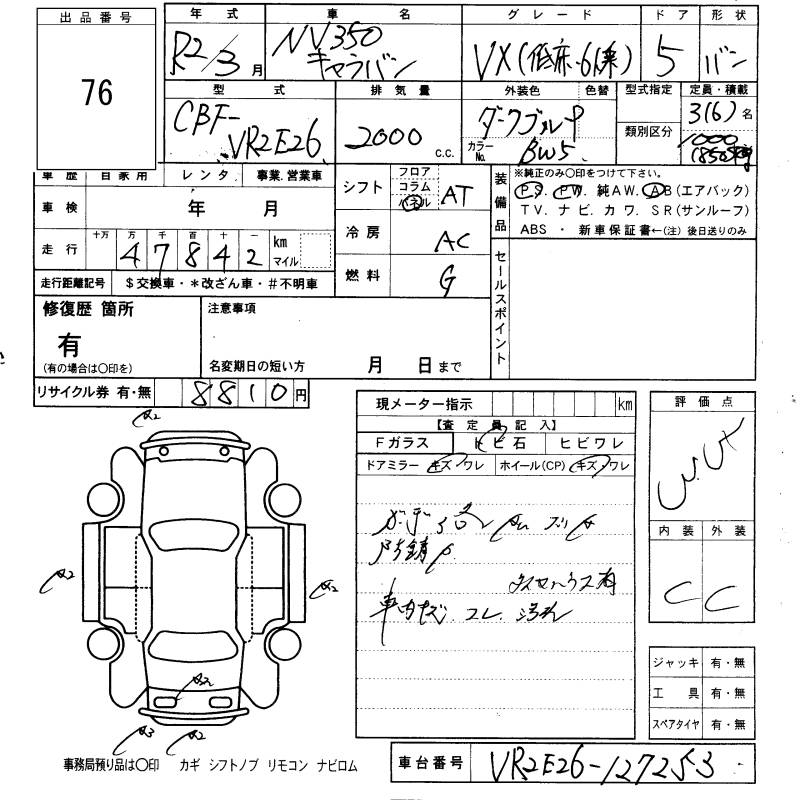 出品番号
76
年式 車名 グレード ドア 形状
R2/3月 NV350 キャラバン VX(低床・6人乗) 5 バン
型式 排気量 外装色 色替 型式指定 定員・積載
CBF-VR2E26 2000 C.C. カラーNo. BW5 類別区分 3(6)名 1000(850)kg
車歴 自家用 レンタ 事業.営業車
シフト フロア コラム パネル AT
装備品 ※純正のみ〇印をつけて下さい。
PS. PW. 純AW. AB(エアバック)
TV. ナビ. カワ. SR(サンルーフ)
ABS ・ 新車保証書←(注)後日送りのみ
車検 年 月
冷房 AC
走行 十万 万 千 百 十 一 km マイル
47842
燃料 G
走行距離記号 $交換車・*改ざん車・#不明車
セールスポイント
修復歴 箇所
有
(有の場合は〇印を)
注意事項
名変期日の短い方 月 日まで
リサイクル券 有・無 8810円
現メーター指示 km
【査定員記入】
Fガラス トビ石 ヒビワレ
ドアミラー キズ・ワレ ホイール(CP) キズ・ワレ
車内キズ. コレ. 汚れ
評価点
内装 外装
C C
A2
A2
A2
A2
A3
A2
ジャッキ 有・無
工具 有・無
スペアタイヤ 有・無
事務局預り品は〇印 カギ シフトノブ リモコン ナビロム
車台番号 VR2E26-127253